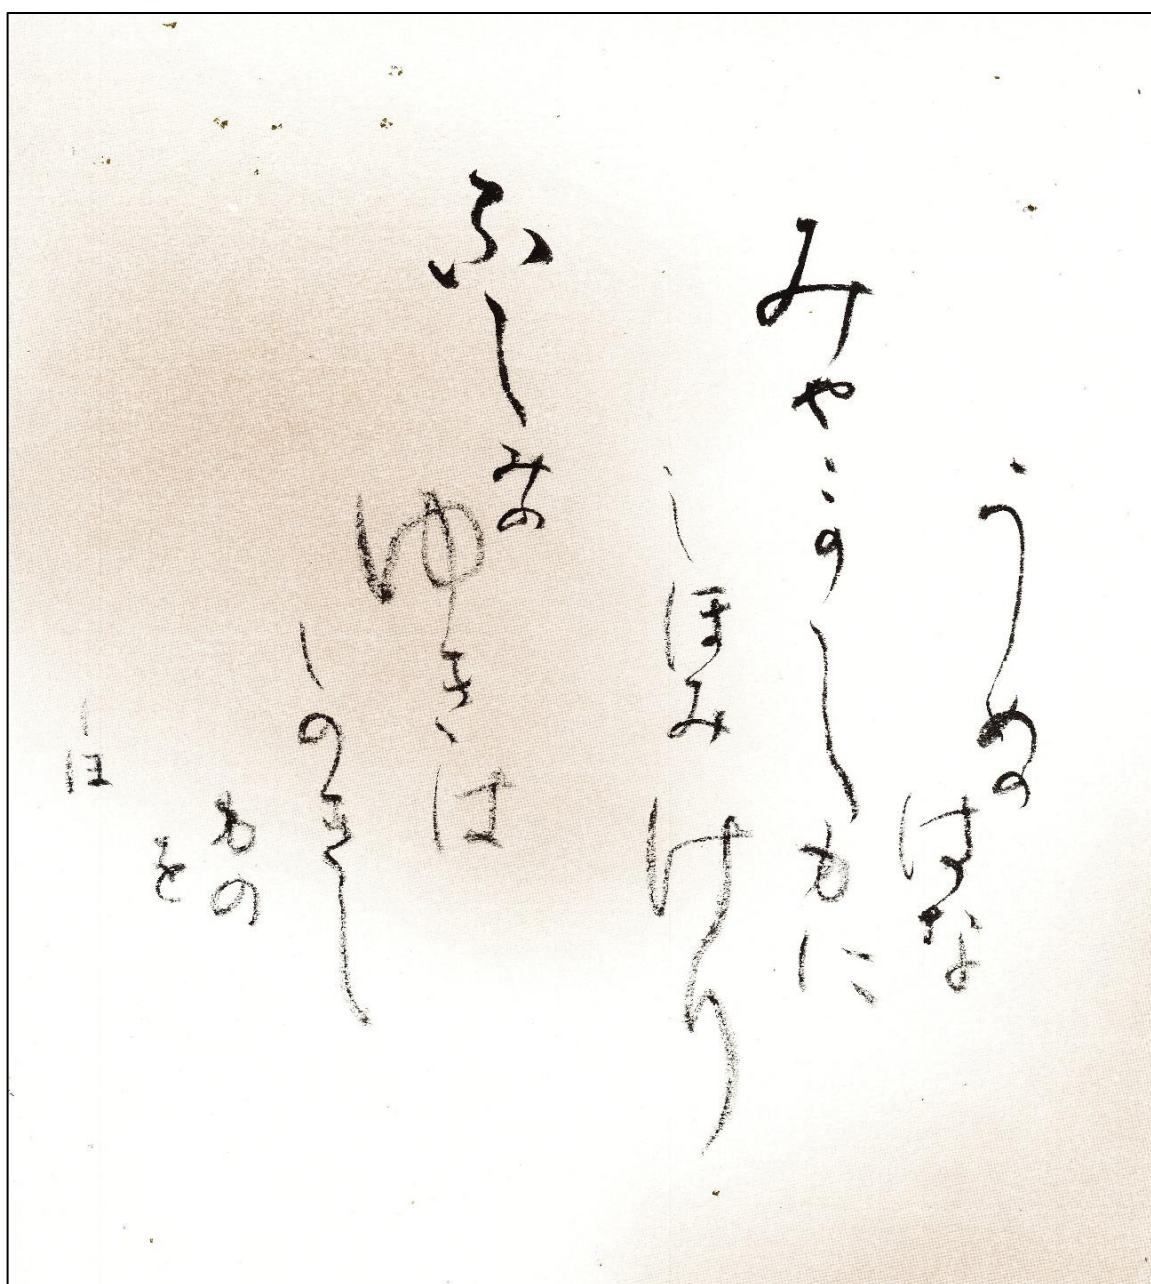 うめの
はな
みやこのしもに
しほみけり
ふしみの
ゆきは
しのきし
もの
を